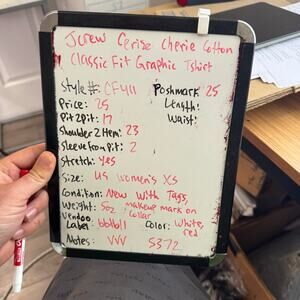 Jcrew Cerise Cherie Cotton
Classic Fit Graphic Tshirt
Style #: CF411 Poshmark 25
Price: 25 Length:
Pit2pit: 17 Waist:
Shoulder 2 Hem: 23
Sleeve from Pit: 2
Stretch: yes
Size: US womens XS
Condition: New With Tags,
makeup mark on
collar
Weight: 5oz
Vendoo
Label: Color: white,
red
Notes: VVV 5372